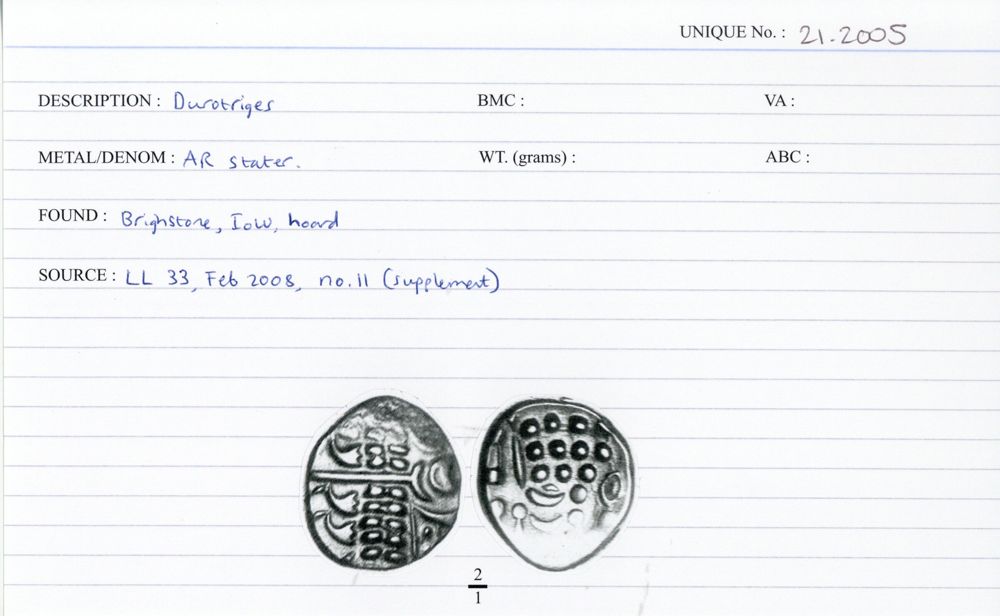 UNIQUE No. : 21.2005
DESCRIPTION : Durotriges BMC : VA :
METAL/DENOM : AR stater. WT. (grams) : ABC :
FOUND : Brighstone, IoW, hoard
SOURCE : LL 33, Feb 2008, no.11 (supplement)
2
1